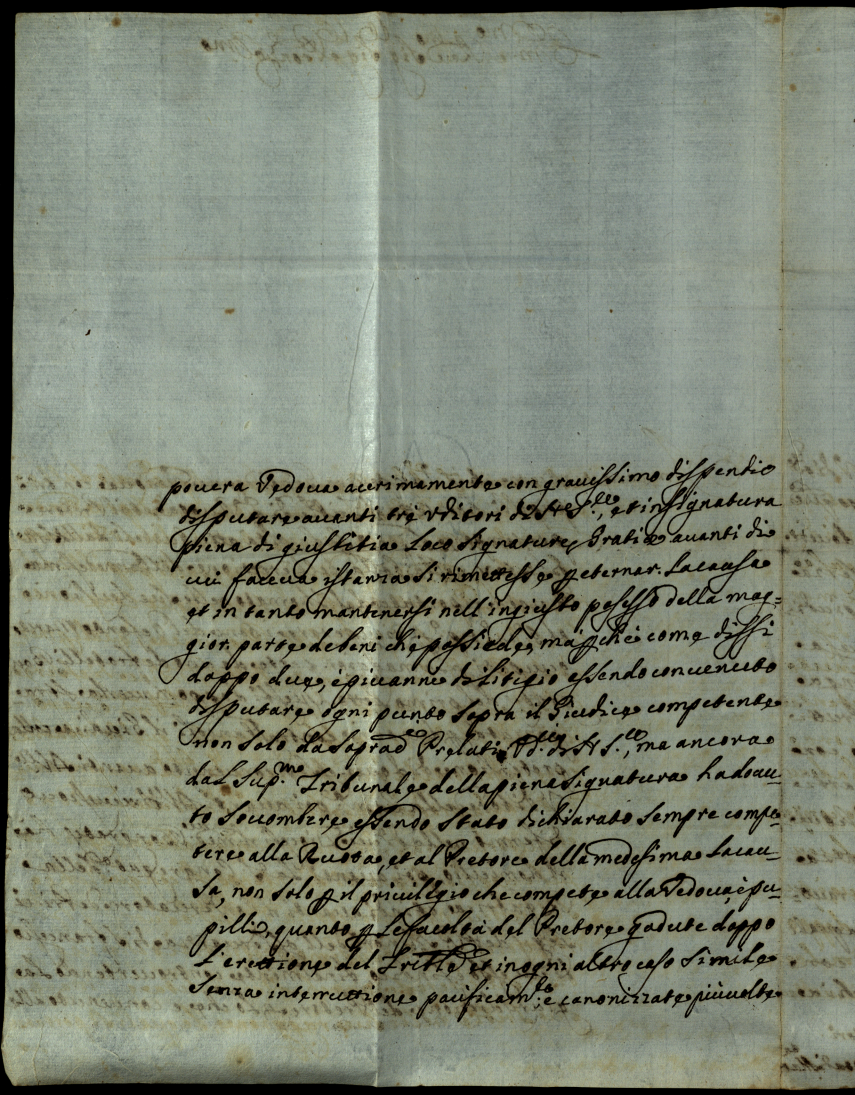 pouera Vedoua acerimamente con grauissimo dispendio
disputare auanti trè Vditori di N. S.re, et in signatura
piena di giustitia loco signature Gratie auanti di
cui faceua istanza si rimettesse p eternar. la causa
et in tanto mantenersi nell'ingiusto posesso della mag=
gior parte de beni che possiede, mà p che come dissi
doppo due, è più anni di litigio essendo conuenuto
disputare ogni punto sopra il Giudice competente
non solo da soprad.i Prelati Vd.ri di N. S.re, ma ancora
dal Sup.mo Tribunale della piena signatura ha doau-
to socombere essendo stato dichiarato sempre compe-
tere alla Ruota, et al Pretore della medesima la cau-
sa, non solo p il priuilegio che compete alla Vedoua, è pu-
pilli, quanto p le facoltà del Pretore godute doppo
l'erettione del Trible et in ogni altro caso simile
senza interruttione pacificam.te è canonizzate più uolte